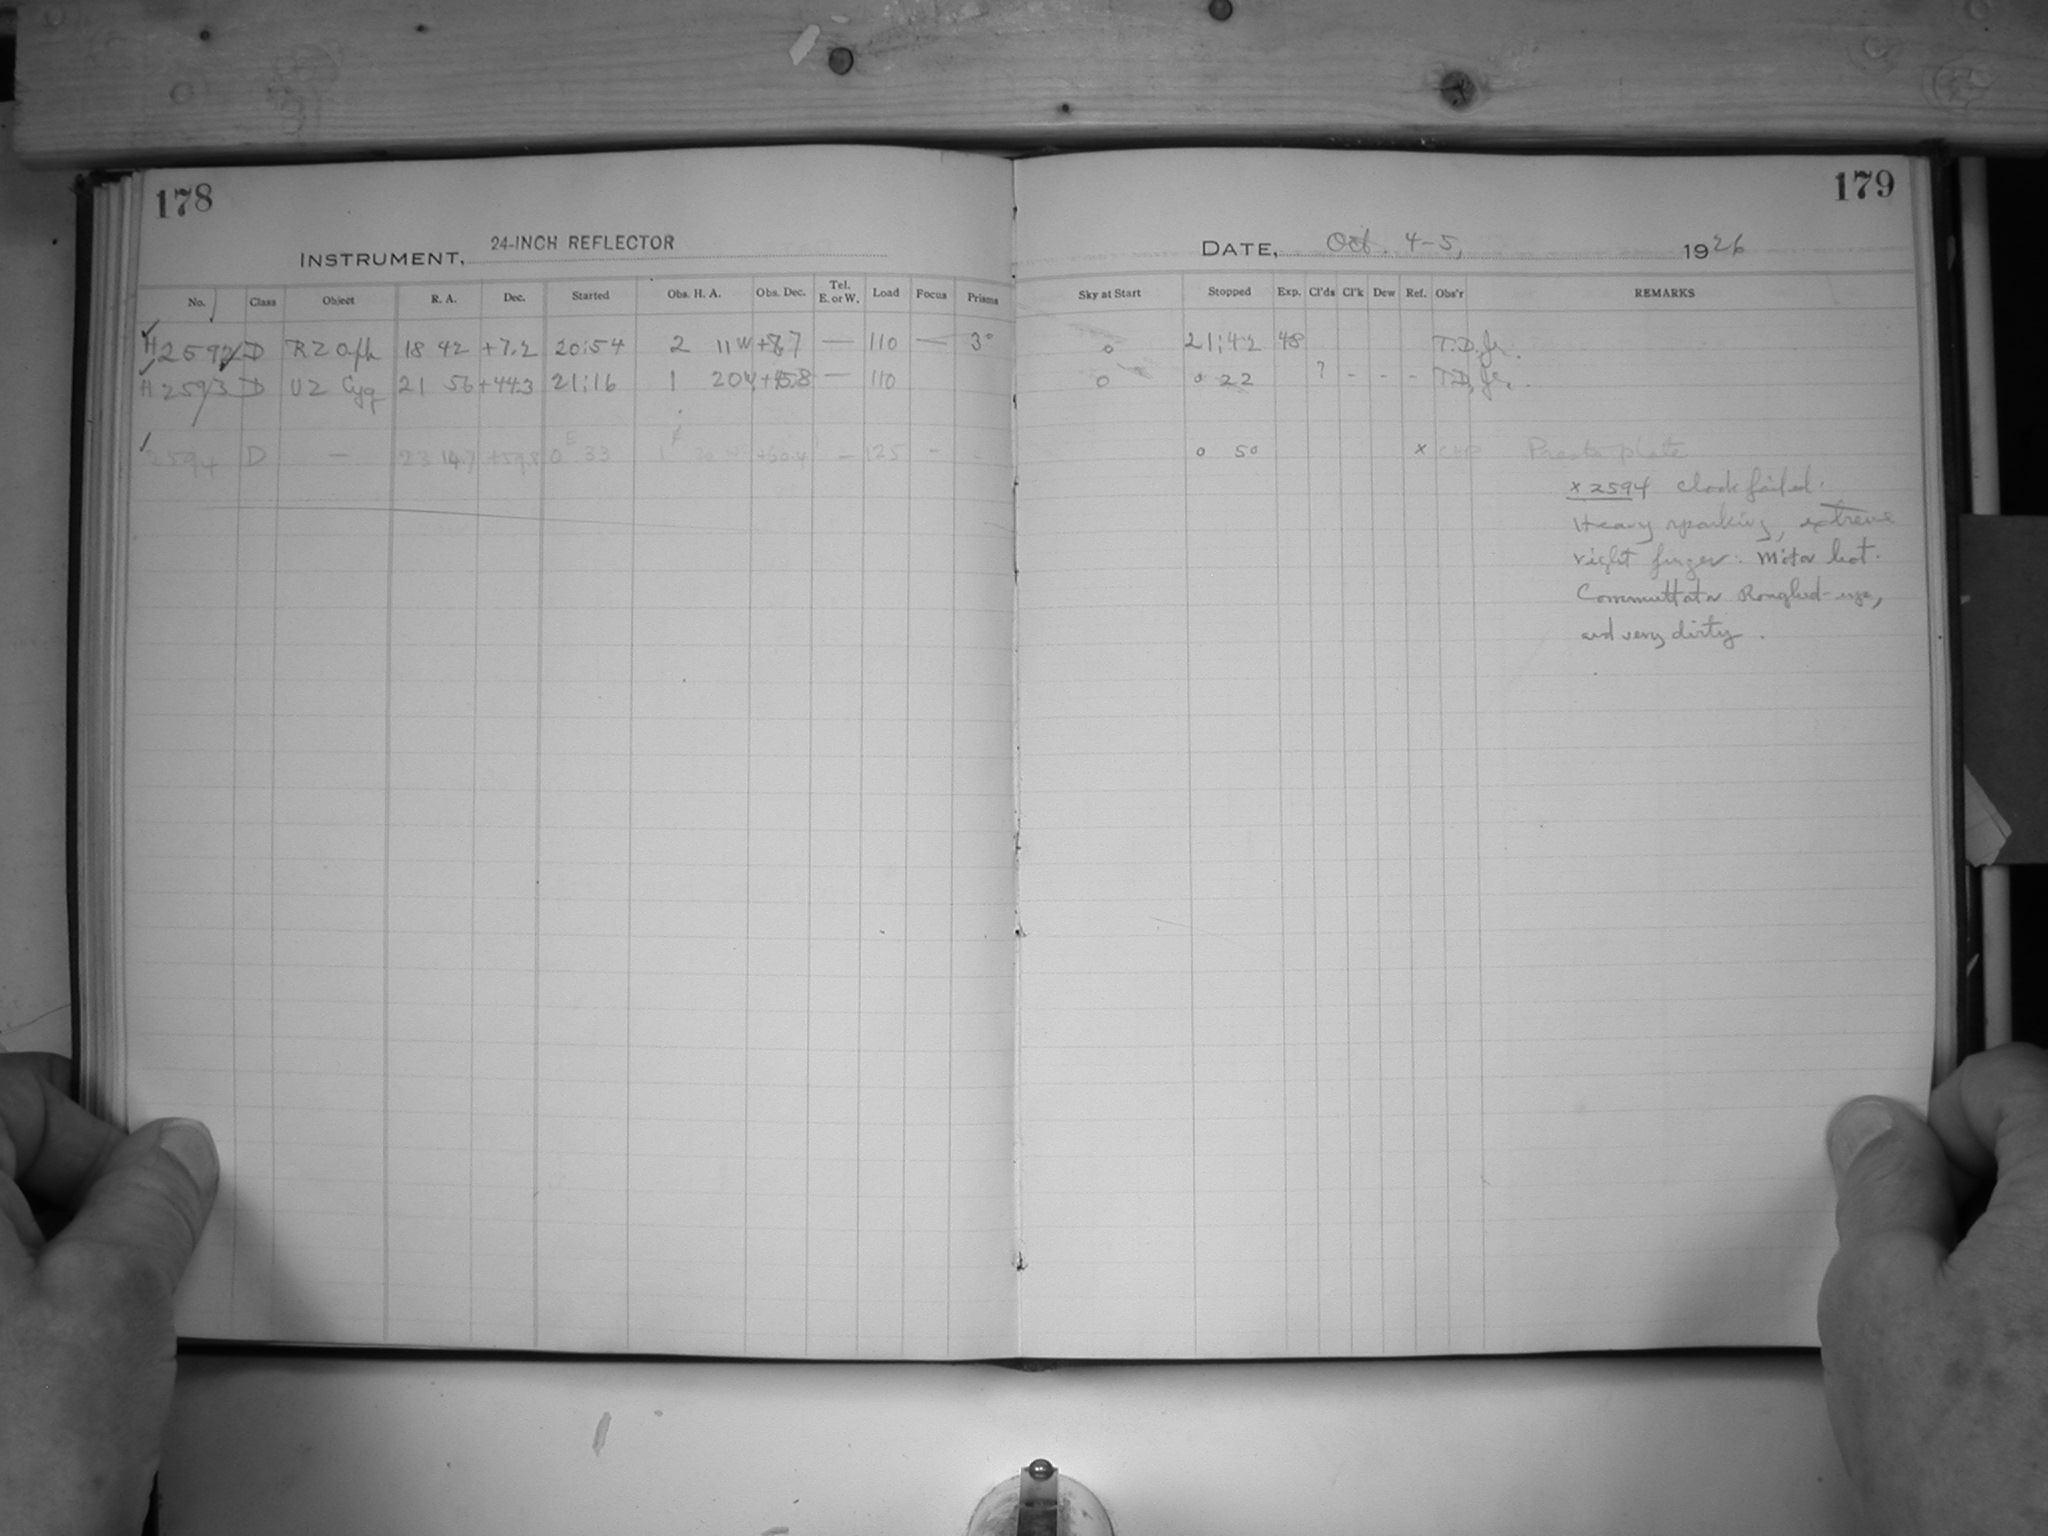 178
INSTRUMENT, 24-INCH REFLECTOR
No. Class Object R. A. Dec. Started Obs. H. A. Obs. Dec. Tel. E. or W. Load Focus Prisms
H 2592 D RZ Oph 18 42 +7.2 20:54 2 11 W — 110 — 3°
H 2593 D UZ Cyg 21 56 +44.3 21:16 1 20 W +45.8 — 110
2594 D — 23 14.7 +59.5 0 33 1 +60.4 — 125 –
179
DATE, Oct. 4-5, 1926
Sky at Start Stopped Exp. Cl'ds Cl'k Dew Ref. Obs'r REMARKS
0 21:42 48 T.D. Jr.
0 0 22 ? - - - T.D. Jr.
0 50 x plate
x 2594 Clock failed.
Heavy sparking, extreme
right finger. Motor hot.
Commuttator Roughed-up,
and very dirty.